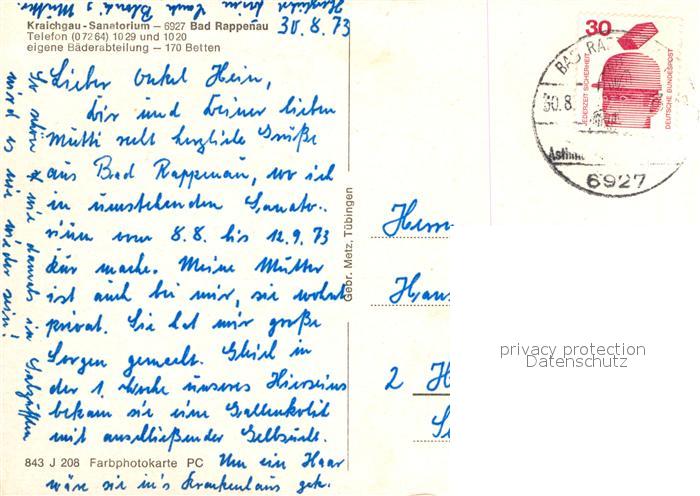 Kraichgau-Sanatorium – 6927 Bad Rappenau
Telefon (07264) 1029 und 1020
eigene Bäderabteilung – 170 Betten
30.8.73
Lieber Onkel Hein,
Dir und Deiner lieben
Mutti recht herzliche Grüße
aus Bad Rappenau, wo ich
in umstehenden Sanato-
rium vom 8.8. bis 12.9.73
Kur mache. Meine Mutter
ist auch bei mir, sie wohnt
privat. Sie hat mir große
Sorgen gemacht. Gleich in
der 1. Woche unseres Hierseins
bekam sie eine Gallenkolik
mit anschließender Gelbsucht.
Um ein Haar
wäre sie in's Krankenhaus gek.
So schön wie damals in Salzuflen
wird es nie wieder sein!
Herzlichst
Mutter
843 J 208 Farbphotokarte PC
Gebr. Metz, Tübingen
Herrn
2
30
JEDERZEIT SICHERHEIT
DEUTSCHE BUNDESPOST
BAD RA
30.8.
6927
privacy protection
Datenschutz